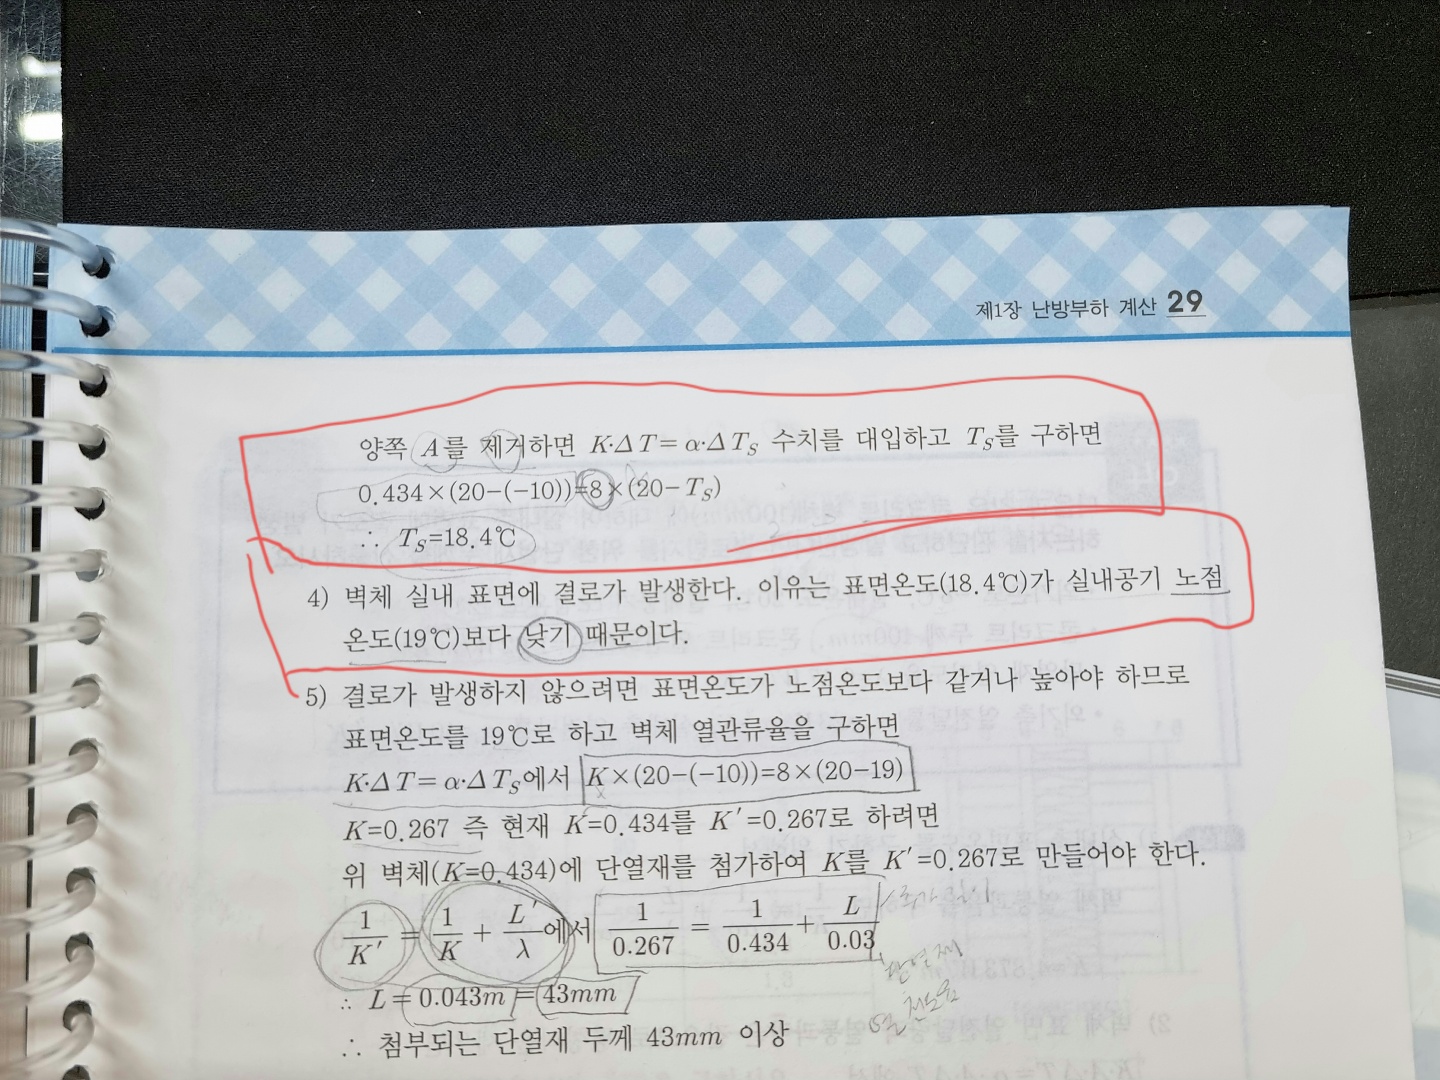 제1장 난방부하 계산 29
양쪽 A를 제거하면 K·ΔT=α·ΔT_S 수치를 대입하고 T_S를 구하면
0.434×(20-(-10))=8×(20-T_S)
∴ T_S=18.4℃
4) 벽체 실내 표면에 결로가 발생한다. 이유는 표면온도(18.4℃)가 실내공기 노점
온도(19℃)보다 낮기 때문이다.
5) 결로가 발생하지 않으려면 표면온도가 노점온도보다 같거나 높아야 하므로
표면온도를 19℃로 하고 벽체 열관류율을 구하면
K·ΔT=α·ΔT_S에서 K×(20-(-10))=8×(20-19)
K=0.267 즉 현재 K=0.434를 K′=0.267로 하려면
위 벽체(K=0.434)에 단열재를 첨가하여 K를 K′=0.267로 만들어야 한다.
1/K′ = 1/K + L′/λ 에서 1/0.267 = 1/0.434 + L/0.03
단열재
열전도율
∴ L=0.043m=43mm
∴ 첨부되는 단열재 두께 43mm 이상